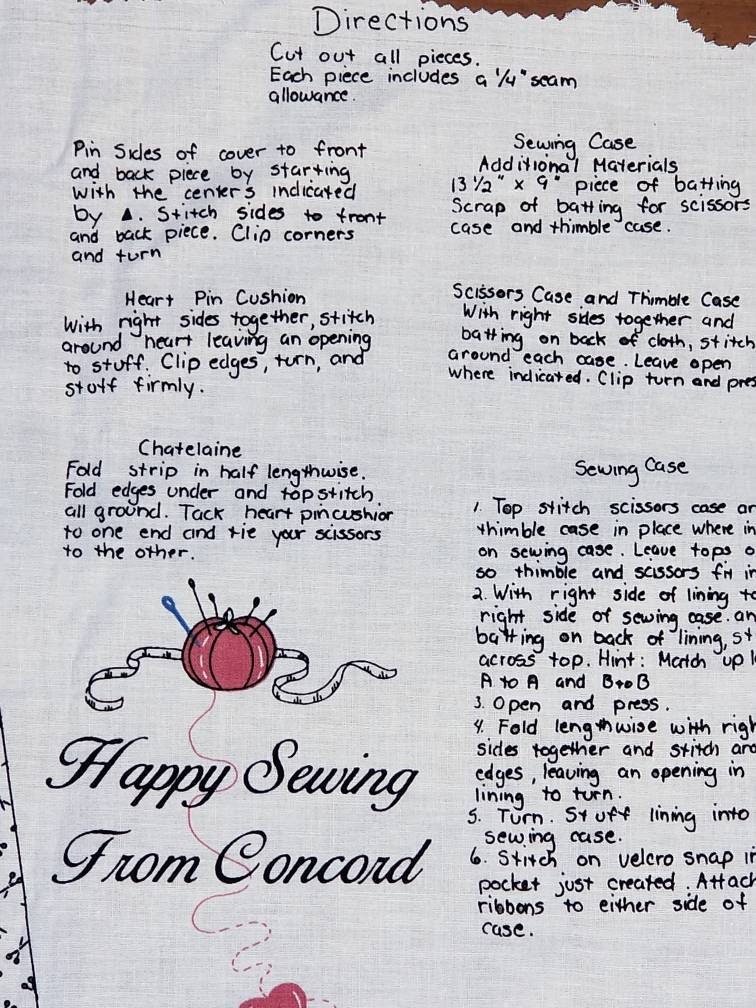 Directions
Cut out all pieces.
Each piece includes a 1/4" seam
allowance.
Pin Sides of cover to front
and back piece by starting
with the centers indicated
by ▲. Stitch sides to front
and back piece. Clip corners
and turn
Heart Pin Cushion
With right sides together, stitch
around heart leaving an opening
to stuff. Clip edges, turn, and
stuff firmly.
Chatelaine
Fold strip in half lengthwise.
Fold edges under and topstitch
all ground. Tack heart pincushior
to one end and tie your scissors
to the other.
Happy Sewing
From Concord
Sewing Case
Additional Materials
13 1/2" x 9" piece of batting
Scrap of batting for scissors
case and thimble case.
Scissors Case and Thimble Case
With right sides together and
batting on back of cloth, stitch
around each case. Leave open
where indicated. Clip turn and pres
Sewing Case
1. Top stitch scissors case ar
thimble case in place where in
on sewing case. Leave tops o
so thimble and scissors fit in
2. With right side of lining to
right side of sewing case. an
batting on back of lining, st
across top. Hint: Match up
A to A and B to B
3. Open and press.
4. Fold lengthwise with righ
sides together and stitch aro
edges, leaving an opening in
lining to turn.
5. Turn. Stuff lining into
sewing case.
6. Stitch on velcro snap in
pocket just created. Attach
ribbons to either side of
case.